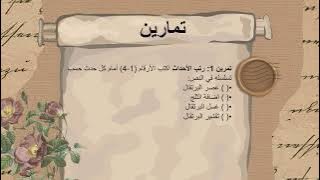 تمارين
تمرين 1: رتب الأحداث اكتب الأرقام (1-4) أمام كل حدث حسب
تسلسله في النص:
•( ) عصر البرتقال
•( ) اضافة الثلج
•( ) غسل البرتقال
•( ) تقشير البرتقال